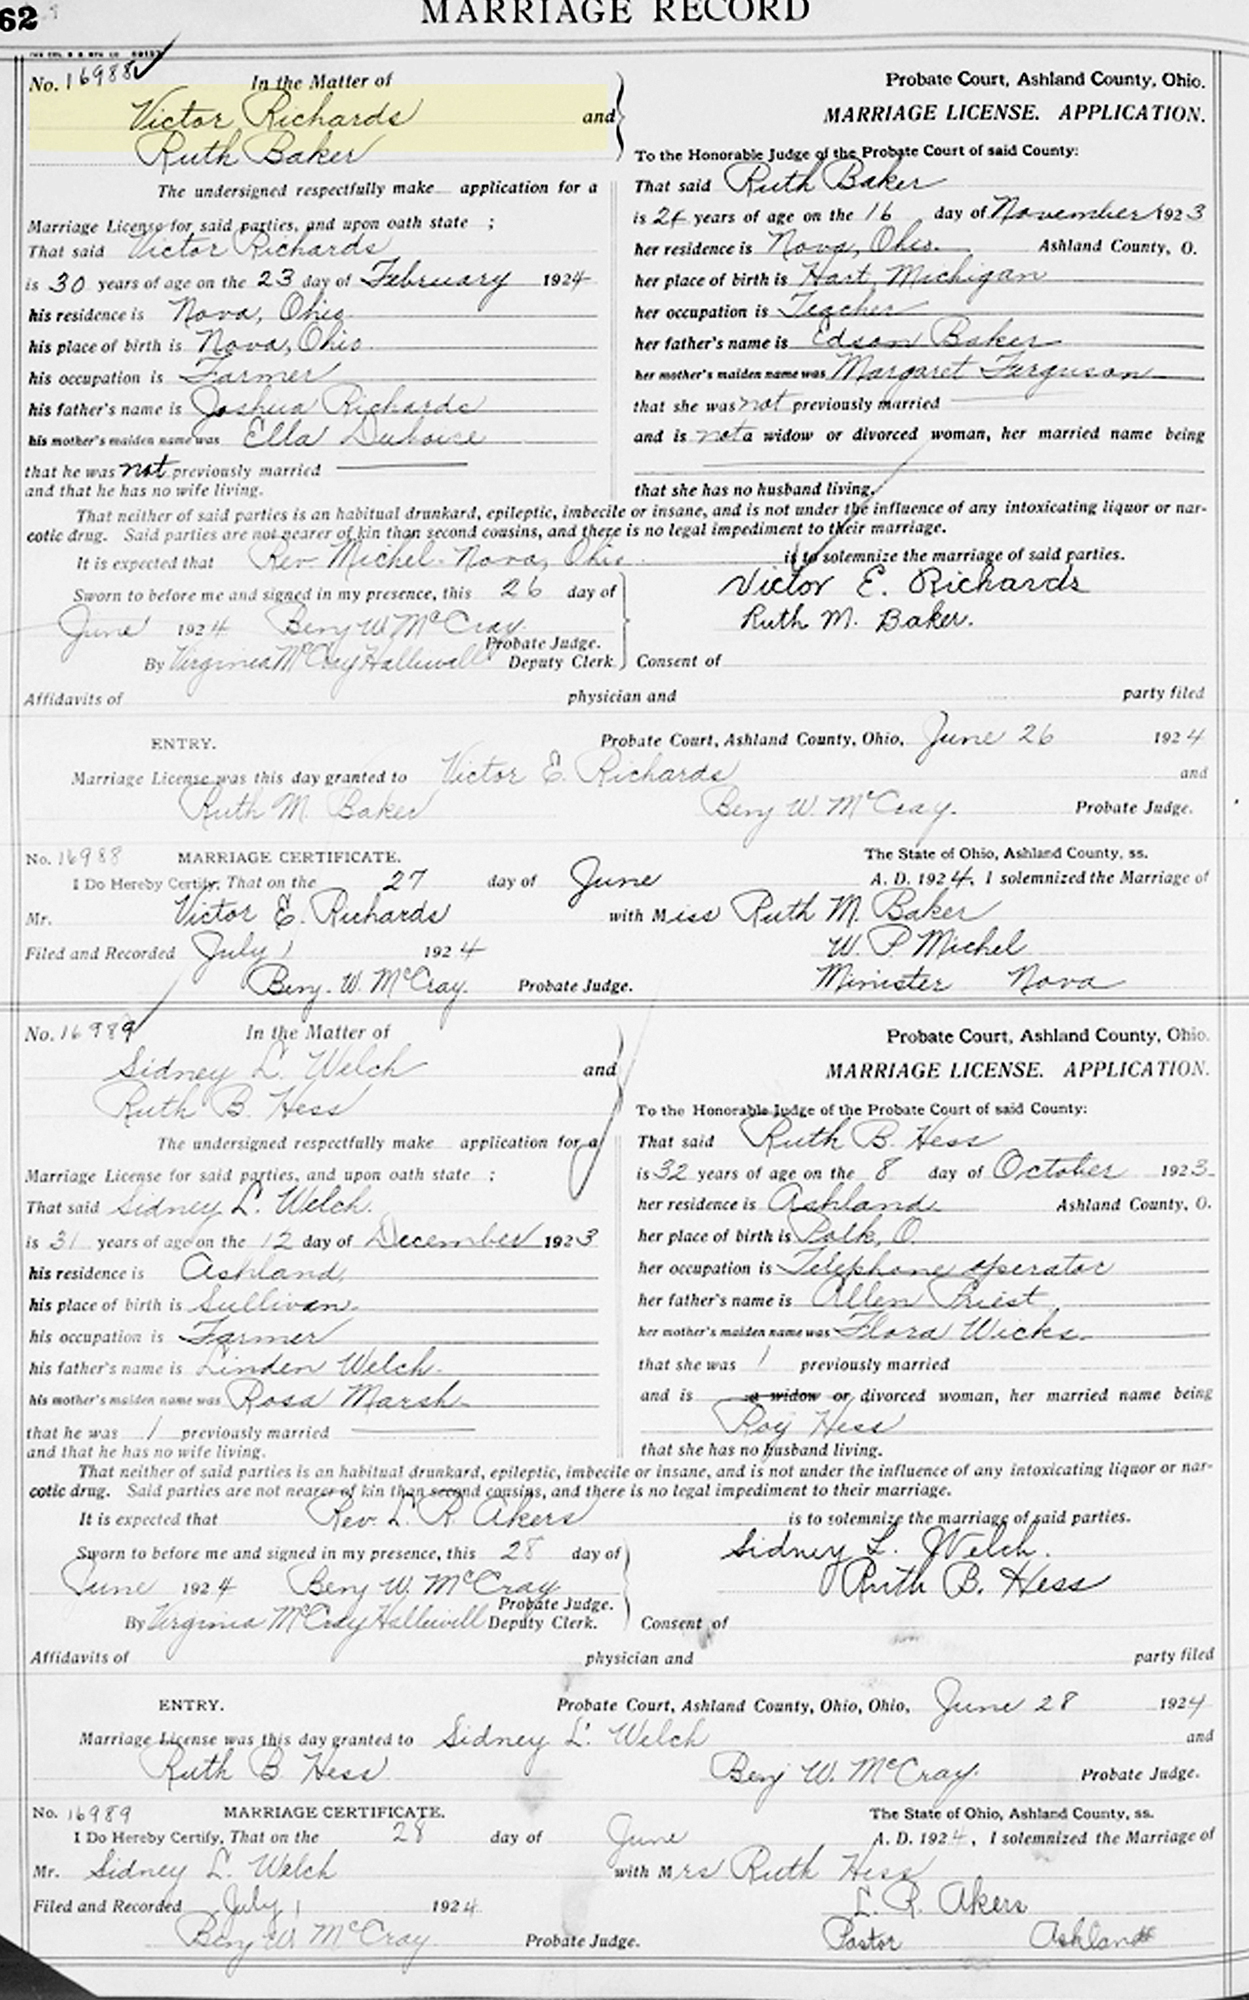 62
MARRIAGE RECORD
No. 16988 In the Matter of
Victor Richards and
Ruth Baker
The undersigned respectfully make application for a
Marriage License for said parties, and upon oath state ;
That said Victor Richards
is 30 years of age on the 23 day of February 1924
his residence is Nova, Ohio
his place of birth is Nova, Ohio.
his occupation is Farmer
his father's name is Joshua Richards
his mother's maiden name was Ella Duboice
that he was not previously married
and that he has no wife living.
Probate Court, Ashland County, Ohio.
MARRIAGE LICENSE. APPLICATION.
To the Honorable Judge of the Probate Court of said County:
That said Ruth Baker
is 24 years of age on the 16 day of November 1923
her residence is Nova, Ohio. Ashland County, O.
her place of birth is Hart, Michigan
her occupation is Teacher
her father's name is Edson Baker
her mother's maiden name was Margaret Ferguson
that she was not previously married
and is not a widow or divorced woman, her married name being
that she has no husband living.
That neither of said parties is an habitual drunkard, epileptic, imbecile or insane, and is not under the influence of any intoxicating liquor or nar-
cotic drug. Said parties are not nearer of kin than second cousins, and there is no legal impediment to their marriage.
It is expected that Rev. Michel - Nova, Ohio. is to solemnize the marriage of said parties.
Sworn to before me and signed in my presence, this 26 day of
June 1924 Benj W. McCray
Probate Judge.
By Virginia McCray Halliwill Deputy Clerk.
Victor E. Richards
Ruth M. Baker.
Consent of
Affidavits of physician and party filed
ENTRY. Probate Court, Ashland County, Ohio, June 26 1924
Marriage License was this day granted to Victor E. Richards and
Ruth M. Baker Benj W. McCray. Probate Judge.
No. 16988 MARRIAGE CERTIFICATE. The State of Ohio, Ashland County, ss.
I Do Hereby Certify, That on the 27 day of June A. D. 1924, I solemnized the Marriage of
Mr. Victor E. Richards with Miss Ruth M. Baker
Filed and Recorded July 1 1924 W. P Michel
Benj. W. McCray. Probate Judge. Minister Nova
No. 16989 In the Matter of
Sidney L. Welch and
Ruth B. Hess
The undersigned respectfully make application for a
Marriage License for said parties, and upon oath state ;
That said Sidney L. Welch.
is 31 years of age on the 12 day of December 1923
his residence is Ashland,
his place of birth is Sullivan.
his occupation is Farmer
his father's name is Linden Welch.
his mother's maiden name was Rosa Marsh.
that he was 1 previously married
and that he has no wife living.
Probate Court, Ashland County, Ohio.
MARRIAGE LICENSE. APPLICATION.
To the Honorable Judge of the Probate Court of said County:
That said Ruth B. Hess
is 32 years of age on the 8 day of October 1923.
her residence is Ashland. Ashland County, O.
her place of birth is Polk, O.
her occupation is Telephone operator
her father's name is Allen Priest
her mother's maiden name was Flora Wicks.
that she was 1 previously married
and is a widow or divorced woman, her married name being
Roy Hess
that she has no husband living.
That neither of said parties is an habitual drunkard, epileptic, imbecile or insane, and is not under the influence of any intoxicating liquor or nar-
cotic drug. Said parties are not nearer of kin than second cousins, and there is no legal impediment to their marriage.
It is expected that Rev. L. R. Akers is to solemnize the marriage of said parties.
Sworn to before me and signed in my presence, this 28 day of
June 1924 Benj W. McCray
Probate Judge.
By Virginia McCray Halliwill Deputy Clerk.
Sidney L. Welch.
Ruth B. Hess
Consent of
Affidavits of physician and party filed
ENTRY. Probate Court, Ashland County, Ohio, Ohio, June 28 1924
Marriage License was this day granted to Sidney L. Welch and
Ruth B. Hess Benj W. McCray. Probate Judge.
No. 16989 MARRIAGE CERTIFICATE. The State of Ohio, Ashland County, ss.
I Do Hereby Certify, That on the 28 day of June A. D. 1924, I solemnized the Marriage of
Mr. Sidney L. Welch with Mrs Ruth Hess
Filed and Recorded July 1 1924 L. R. Akers
Benj W. McCray Probate Judge. Pastor Ashland